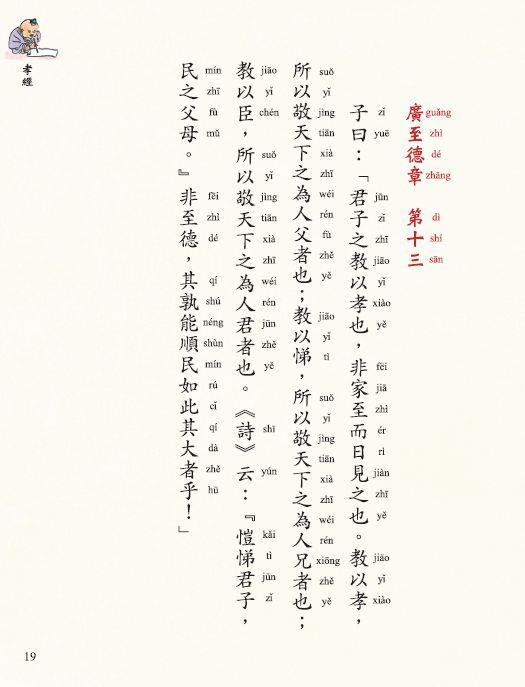 孝經
廣至德章 第十三
guǎng zhì dé zhāng dì shí sān
子曰：「君子之教以孝也，非家至而日見之也。教以孝，
zǐ yuē jūn zǐ zhī jiào yǐ xiào yě fēi jiā zhì ér rì jiàn zhī yě jiào yǐ xiào
所以敬天下之為人父者也；教以悌，所以敬天下之為人兄者也；
suǒ yǐ jìng tiān xià zhī wéi rén fù zhě yě jiào yǐ tì suǒ yǐ jìng tiān xià zhī wéi rén xiōng zhě yě
教以臣，所以敬天下之為人君者也。《詩》云：『愷悌君子，
jiāo yǐ chén suǒ yǐ jìng tiān xià zhī wéi rén jūn zhě yě shī yún kǎi tì jūn zǐ
民之父母。』非至德，其孰能順民如此其大者乎！」
mín zhī fù mǔ fēi zhì dé qí shú néng shùn mín rú cǐ qí dà zhě hū
19